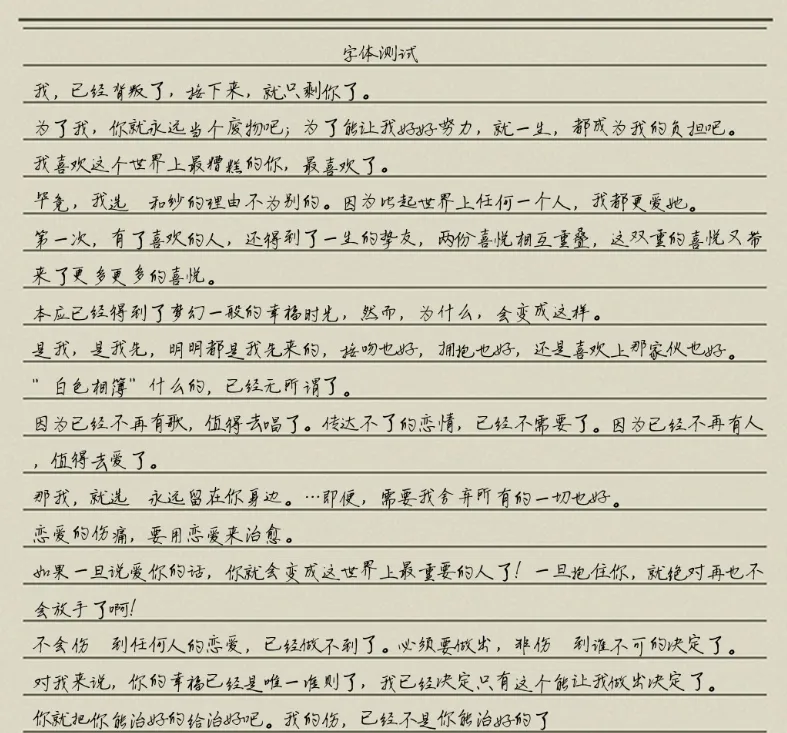 字体测试
我，已经背叛了，接下来，就只剩你了。
为了我，你就永远当个废物吧；为了能让我好好努力，就一生，都成为我的负担吧。
我喜欢这个世界上最糟糕的你，最喜欢了。
毕竟，我选 和纱的理由不为别的。因为比起世界上任何一个人，我都更爱她。
第一次，有了喜欢的人，还得到了一生的挚友，两份喜悦相互重叠，这双重的喜悦又带
来了更多更多的喜悦。
本应已经得到了梦幻一般的幸福时光，然而，为什么，会变成这样。
是我，是我先，明明都是我先来的，接吻也好，拥抱也好，还是喜欢上那家伙也好。
"白色相簿"什么的，已经无所谓了。
因为已经不再有歌，值得去唱了。传达不了的恋情，已经不需要了。因为已经不再有人
，值得去爱了。
那我，就选 永远留在你身边。…即便，需要我舍弃所有的一切也好。
恋爱的伤痛，要用恋爱来治愈。
如果一旦说爱你的话，你就会变成这世界上最重要的人了！一旦抱住你，就绝对再也不
会放手了啊！
不会伤 到任何人的恋爱，已经做不到了。必须要做出，非伤 到谁不可的决定了。
对我来说，你的幸福已经是唯一准则了，我已经决定只有这个能让我做出决定了。
你就把你能治好的给治好吧。我的伤，已经不是你能治好的了